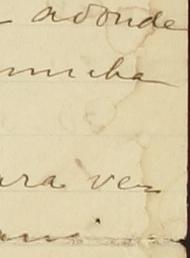 adonde
mucha
ara vez